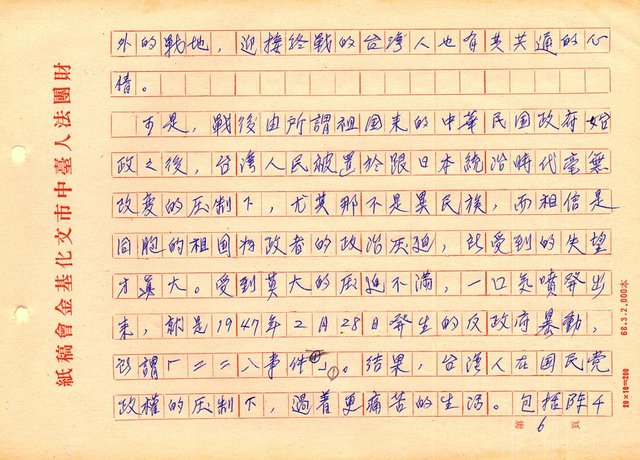 外的戰地，迎接終戰的台灣人也有其共通的心
情。
可是，戰後由所謂祖国来的中華民国政府始
政之後，台湾人民被置於跟日本統治時代毫無
改変的圧制下，尤其那不是異民族，而相信是
同胞的祖国為政者的政治圧迫，所受到的失望
才眞大。受到莫大的圧迫不満，一口気噴発出
来，就是1947年2月28日発生的反政府暴動，
所謂「二二八事件」①。結果，台湾人在国民党
政權的圧制下，過着更痛苦的生活。包括陈千
第6頁
財團法人臺中市文化基金會稿紙
68.3.2,000本
20×10=200